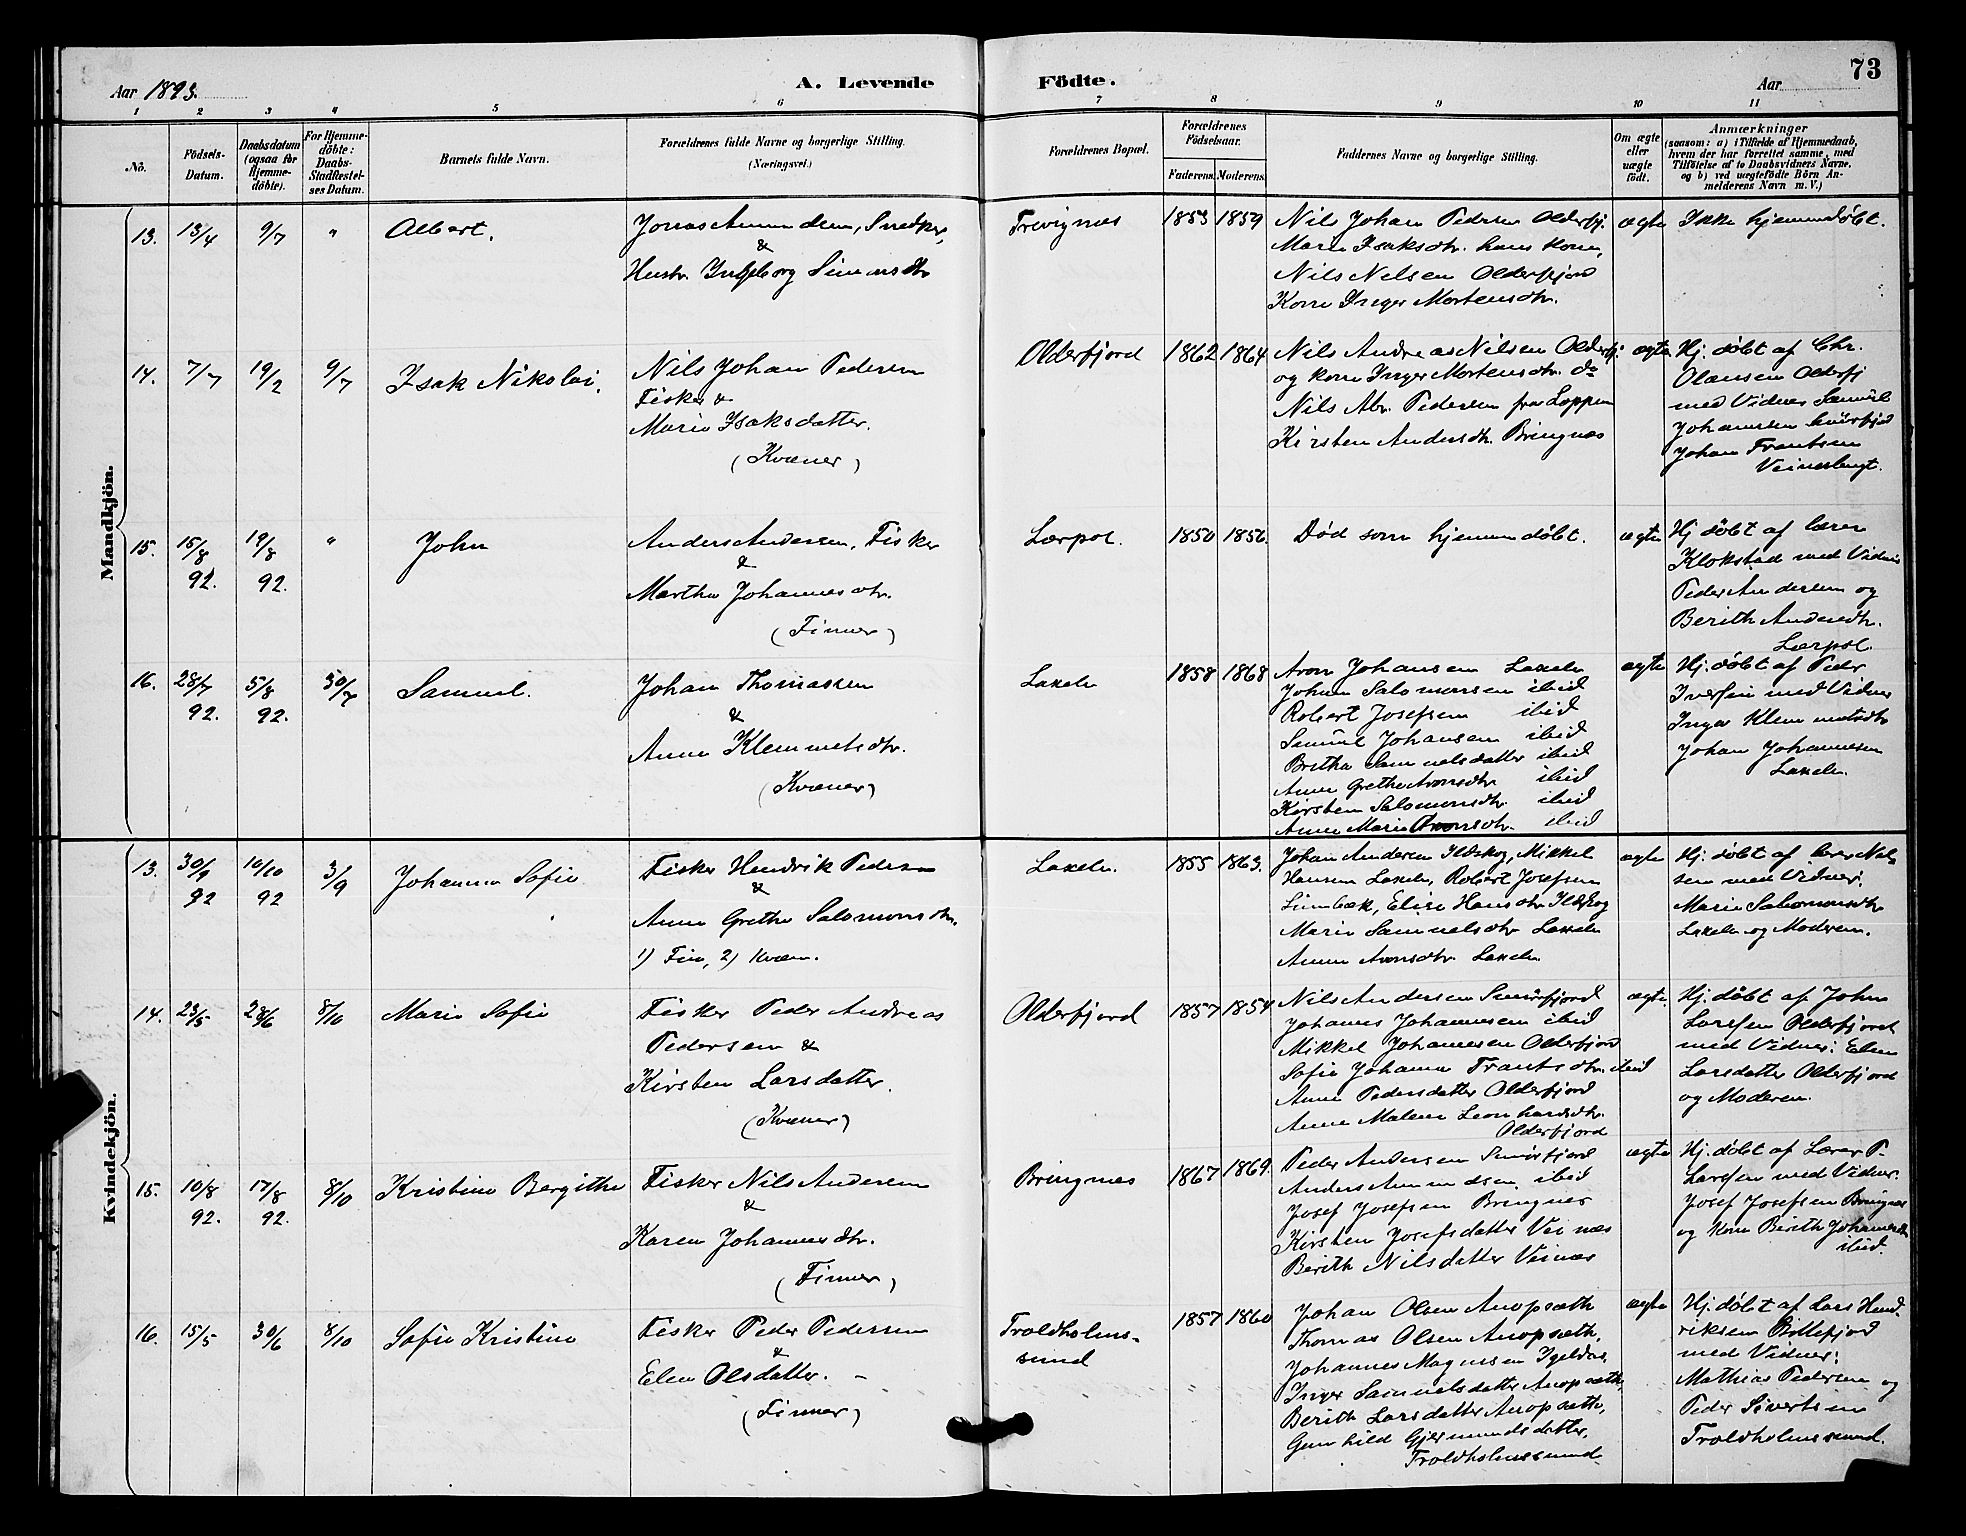 73
Aar 1893.
A. Levende Födte.
Aar
1 2 3 4 5 6 7 8 9 10 11
No.
Födsels-Datum.
Daabsdatum (ogsaa for Hjemme-döbte).
For Hjemme-döbte: Daabs-Stadfæstel-ses Datum.
Barnets fulde Navn.
Forældrenes fulde Navne og borgerlige Stilling.
(Næringsvei.)
Forældrenes Bopæl.
Forældrenes Födselsaar.
Faderens. Moderens.
Faddernes Navne og borgerlige Stilling.
Om ægte eller uægte födt.
Anmærkninger
(saasom: a) i Tilfælde af Hjemmedaab, hvem der har forrettet samme, med Tilföielse af to Daabsvidners Navne, og b) ved uægtefödte Börn An-melderens Navn m. V.)
Mandkjön.
13. 13/4 9/7 " Albert.
Jonas Amundsen, Snedker,
&
Hustr. Ingeborg Simonsdtr
1853 1859
Nils Johan Pedersen Olderfj.
Marie Isaksdtr. hans kone,
Nils Nelsen Olderfjord
Kone Inger Mortensdtr.
ægte
Ikke hjemmedøbt.
14. 7/7 19/2 9/7 Isak Nikolai.
Nils Johan Pedersen
Fisker &
Marie Isaksdatter.
(Kvæner)
Olderfjord 1862 1864
Nils Andreas Nilsen Olderfj.
og kone Inger Mortensdtr. do
Nils Abr. Pedersen fra Loppen
Kirsten Andersdtr. Bringnæs
ægte
Hj. døbt af Chr.
Olausen Olderfj
med Vidner Samuel
Johannesen Smörfjord
Johan Frantsen
15. 15/8 92. 19/8 92. " John
Anders Andersen, Fisker
&
Martha Johannesdtr.
(Finner)
Lærpol. 1850 1856.
Død som hjemmedøbt.
ægte
Hj døbt af lærer
Klokstad med Vidner
Peder Andersen og
Berith Andersdtr.
Lærpol.
16. 28/7 92. 5/8 92. 30/7 Samuel.
Johan Thomassen
&
Anne Klemmetsdtr.
(Kvæner)
Laxelv 1858 1868
Aron Johansen Laxelv
Johan Salomonsen ibid
Robert Josefsen ibid
Samuel Johansen ibid
Britha Samuelsdatter ibid
Anne Grethe Aronsdtr ibid
Kirsten Salomonsdtr. ibid
Anne Marie Aronsdtr. ibid
ægte
Hj. døbt af Peder
Iversen med Vidner
Inger Klemmetsdtr
Johan Johannesen
Laxelv.
Kvindekjön.
13. 30/9 92 10/10 92 3/9 Johanna Sofie
Fisker Hendrik Pedersen
&
Anne Grethe Salomonsdtr.
1) Fin, 2) Kvæn.
Laxelv. 1855 1863.
Johan Andersen Ildskog, Mikkel
Hansen Laxelv, Robert Josefsen
Elise Hansdtr Ildskog
Marie Samuelsdtr Laxelv
Anne Aronsdtr. Laxelv.
ægte
Hj. døbt af lærer Nel
sen med Vidner:
Marie Salomonsdtr
Laxelv og Moderen.
14. 23/5 28/6 8/10 Marie Sofie
Fisker Peder Andreas
Pedersen &
Kirsten Larsdatter.
(Kvæner)
Olderfjord 1857 1854
Nils Andersen Smörfjord
Johannes Johannesen ibid
Mikkel Johannesen Olderfjord
Sofie Johanne Frantsdtr. ibid
Anne Pedersdatter Olderfjord
Anne Malene Leonhardsdtr.
Olderfjord
ægte.
Hj. døbt af John
Larssen Olderfjord
med Vidner: Elen
Larsdatter Olderfjord
og Moderen.
15. 10/8 92. 17/8 92. 8/10 Kristine Bergithe
Fisker Nils Andersen
&
Karen Johannesdtr.
(Finner)
Bringnæs 1867 1869.
Peder Andersen Smörfjord
Anders Amundsen ibid
Josef Josefsen Bringnes
Kirsten Josefsdatter Veinæs
Berith Nilsdatter Veinæs
ægte
Hj. døbt af Lærer P.
Larssen med Vidner:
Josef Josefsen Bringnæs
og kone Berith Johannesdtr
ibid.
16. 15/5 30/6 8/10 Sofie Kristine
Fisker Peder Pedersen
&
Elen Olsdatter.
(Finner)
Troldholms-
sund
1857 1860
Johan Olsen Anopsæth
Thomas Olsen Anopsæth,
Johannes Magnussen Igeldas,
Inger Samuelsdatter Anopsæth,
Berith Larsdatter Anopsæth,
Gunhild Gjermundsdatter,
Troldholmssund
ægte
Hj. døbt af Lars Hend
riksen Billefjord
med Vidner:
Mathias Pedersen og
Peder Sivertsen
Troldholmssund.